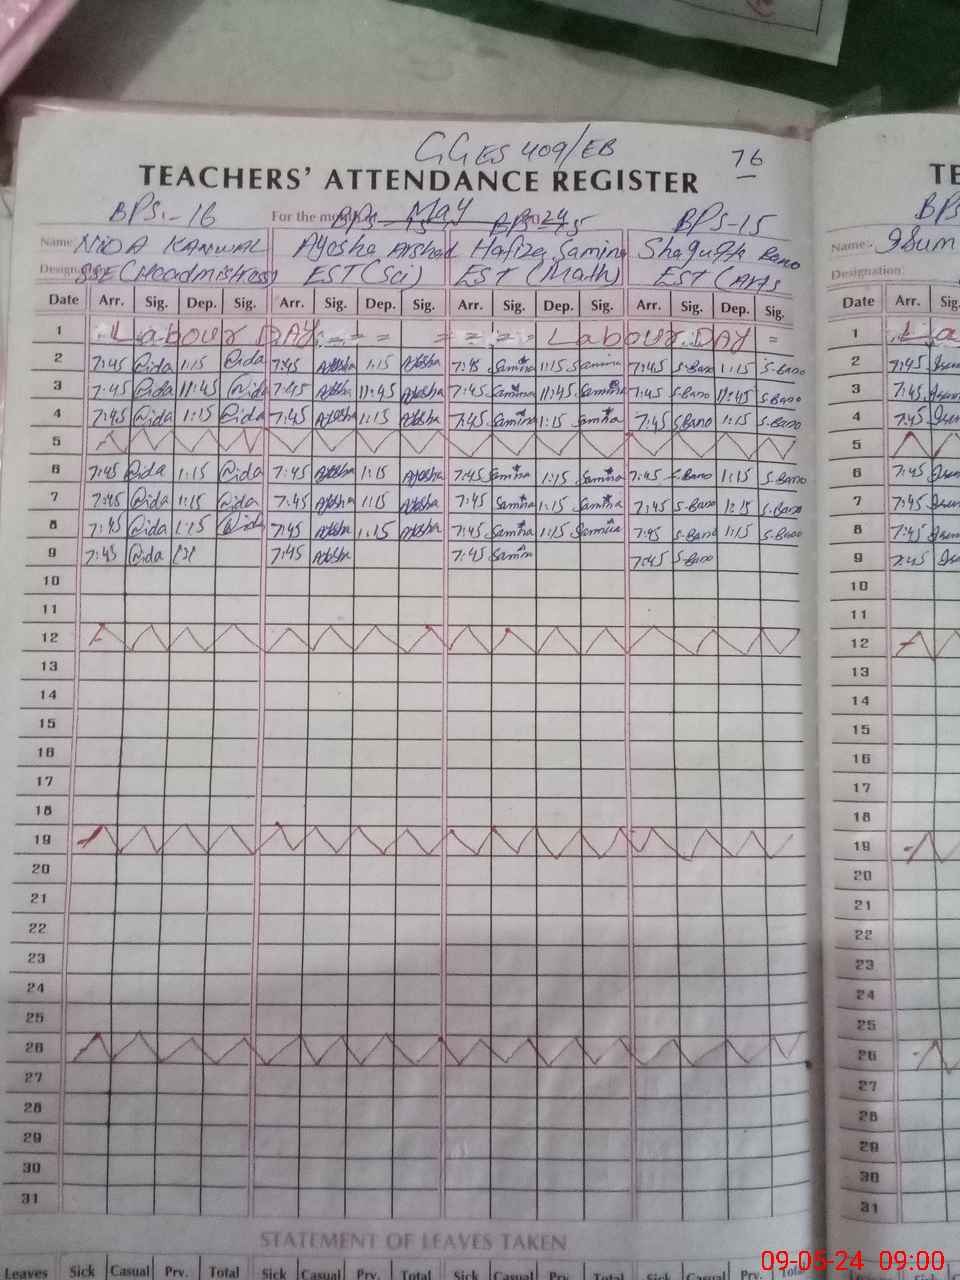 GGES 409/EB 76
TEACHERS' ATTENDANCE REGISTER TE
BPS.-16 For the month May 2024 BPS-15 BPS-15 BPS
Name: NIDA KANWAL Ayesha Arshad Hafiza Samina Shagufta Bano Name:
Designation SSE(Headmistress) EST(Sci) EST (Math) EST (Arts Designation:
Date Arr. Sig. Dep. Sig. Arr. Sig. Dep. Sig. Arr. Sig. Dep. Sig. Arr. Sig. Dep. Sig. Date Arr. Sig.
1 Labour DAY = = = = = Labour DAY = 1 La
2 7:45 Nida 1:15 Nida 7:45 Ayesha 1:15 Ayesha 7:45 Samina 1:15 Samina 7:45 S.Bano 1:15 S.Bano 2 7:45
3 7:45 Nida 11:45 Nida 7:45 Ayesha 11:45 Ayesha 7:45 Samina 11:45 Samina 7:45 S.Bano 11:45 S.Bano 3 7:45
4 7:45 Nida 1:15 Nida 7:45 Ayesha 1:15 Ayesha 7:45 Samina 1:15 Samina 7:45 S.Bano 1:15 S.Bano 4 7:45
5 5
6 7:45 Nida 1:15 Nida 7:45 Ayesha 1:15 Ayesha 7:45 Samina 1:15 Samina 7:45 S.Bano 1:15 S.Bano 6 7:45
7 7:45 Nida 1:15 Nida 7:45 Ayesha 1:15 Ayesha 7:45 Samina 1:15 Samina 7:45 S.Bano 1:15 S.Bano 7 7:45
8 7:45 Nida 1:15 Nida 7:45 Ayesha 1:15 Ayesha 7:45 Samina 1:15 Samina 7:45 S.Bano 1:15 S.Bano 8 7:45
9 7:45 Nida 7:45 Ayesha 7:45 Samina 7:45 S.Bano 9 7:45
10 10
11 11
12 12
13 13
14 14
15 15
16 16
17 17
18 18
19 19
20 20
21 21
22 22
23 23
24 24
25 25
26 26
27 27
28 28
29 29
30 30
31 31
STATEMENT OF LEAVES TAKEN
Leaves Sick Casual Prv. Total Sick Casual Prv. Total Sick Casual Prv. Total Sick Casual Prv. Total
09-05-24 09:00